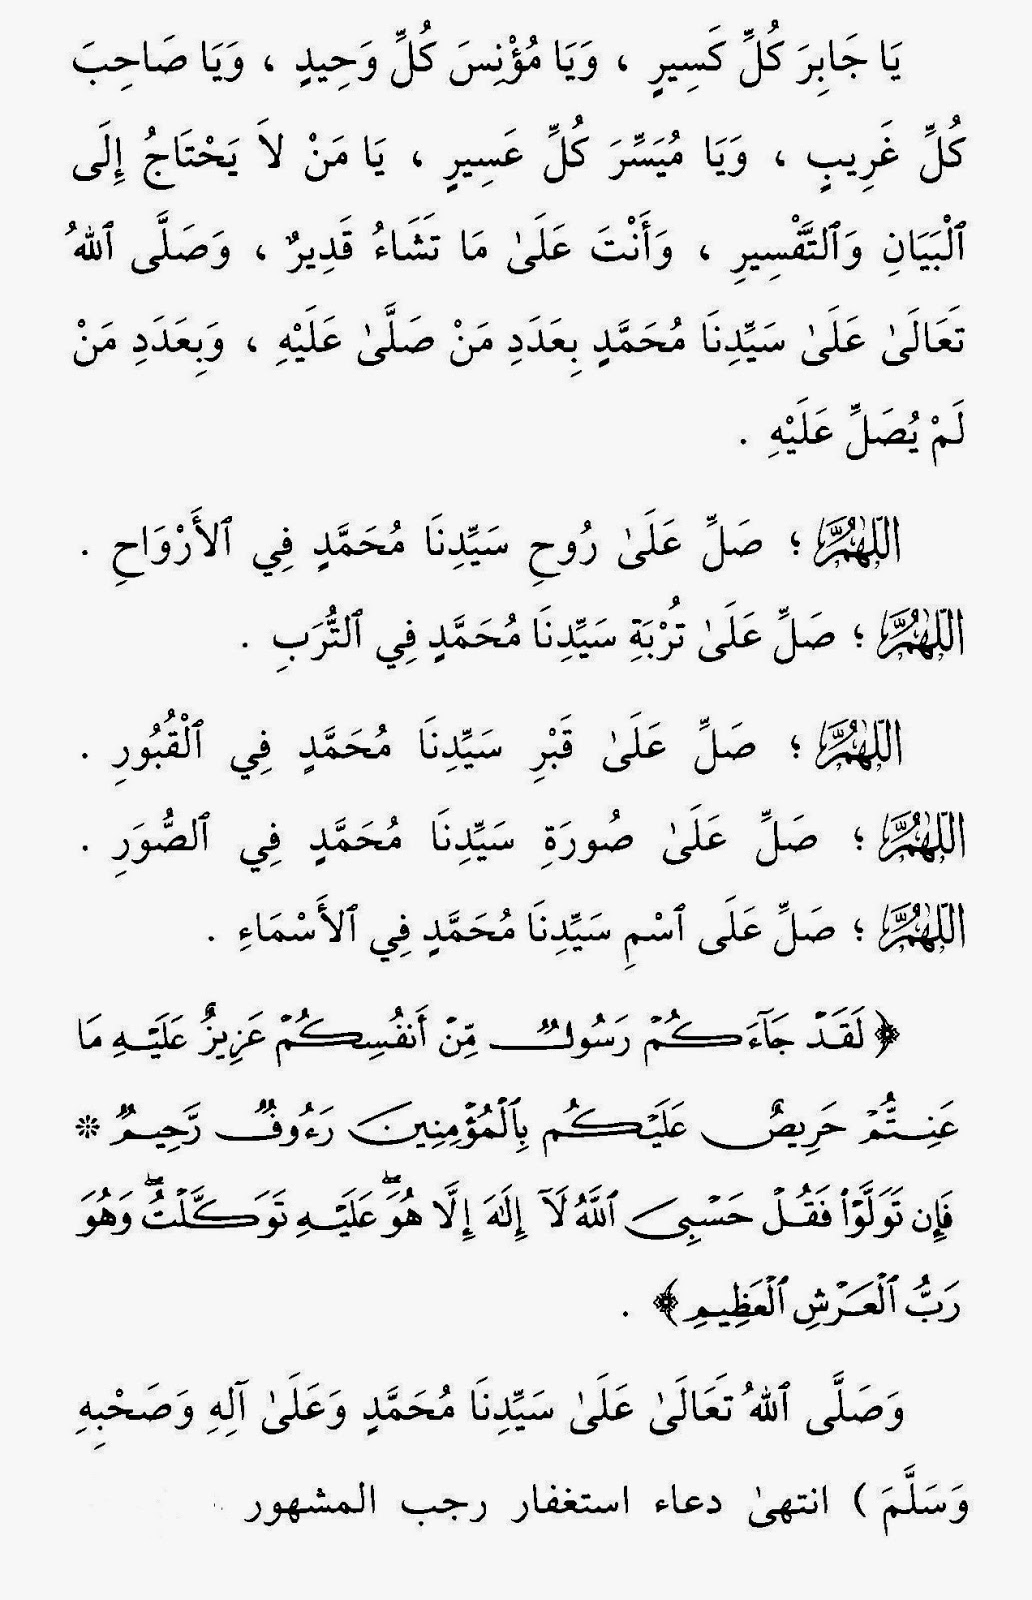 يَا جَابِرَ كُلِّ كَسِيرٍ ، وَيَا مُؤْنِسَ كُلِّ وَحِيدٍ ، وَيَا صَاحِبَ
كُلِّ غَرِيبٍ ، وَيَا مُيَسِّرَ كُلِّ عَسِيرٍ ، يَا مَنْ لاَ يَحْتَاجُ إِلَى
ٱلْبَيَانِ وَٱلتَّفْسِيرِ ، وَأَنْتَ عَلَىٰ مَا تَشَاءُ قَدِيرٌ ، وَصَلَّى ٱللهُ
تَعَالَىٰ عَلَىٰ سَيِّدِنَا مُحَمَّدٍ بِعَدَدِ مَنْ صَلَّىٰ عَلَيْهِ ، وَبِعَدَدِ مَنْ
لَمْ يُصَلِّ عَلَيْهِ .
اللَّهُمَّ ؛ صَلِّ عَلَىٰ رُوحِ سَيِّدِنَا مُحَمَّدٍ فِي ٱلأَرْوَاحِ .
اللَّهُمَّ ؛ صَلِّ عَلَىٰ تُرْبَةِ سَيِّدِنَا مُحَمَّدٍ فِي ٱلتُّرَبِ .
اللَّهُمَّ ؛ صَلِّ عَلَىٰ قَبْرِ سَيِّدِنَا مُحَمَّدٍ فِي ٱلْقُبُورِ .
اللَّهُمَّ ؛ صَلِّ عَلَىٰ صُورَةِ سَيِّدِنَا مُحَمَّدٍ فِي ٱلصُّوَرِ .
اللَّهُمَّ ؛ صَلِّ عَلَى ٱسْمِ سَيِّدِنَا مُحَمَّدٍ فِي ٱلأَسْمَاءِ .
﴿ لَقَدْ جَآءَكُمْ رَسُولٌ مِّنْ أَنفُسِكُمْ عَزِيزٌ عَلَيْهِ مَا
عَنِتُّمْ حَرِيصٌ عَلَيْكُم بِٱلْمُؤْمِنِينَ رَءُوفٌ رَّحِيمٌ *
فَإِن تَوَلَّوْا۟ فَقُلْ حَسْبِىَ ٱللَّهُ لَآ إِلَٰهَ إِلَّا هُوَۖ عَلَيْهِ تَوَكَّلْتُۖ وَهُوَ
رَبُّ ٱلْعَرْشِ ٱلْعَظِيمِ ﴾ .
وَصَلَّى ٱللهُ تَعَالَىٰ عَلَىٰ سَيِّدِنَا مُحَمَّدٍ وَعَلَىٰ آلِهِ وَصَحْبِهِ
وَسَلَّمَ ) انتهىٰ دعاء استغفار رجب المشهور